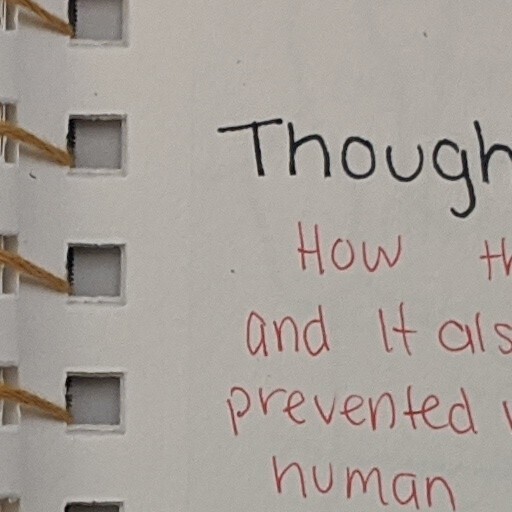 Though
How th
and It als
prevented
human